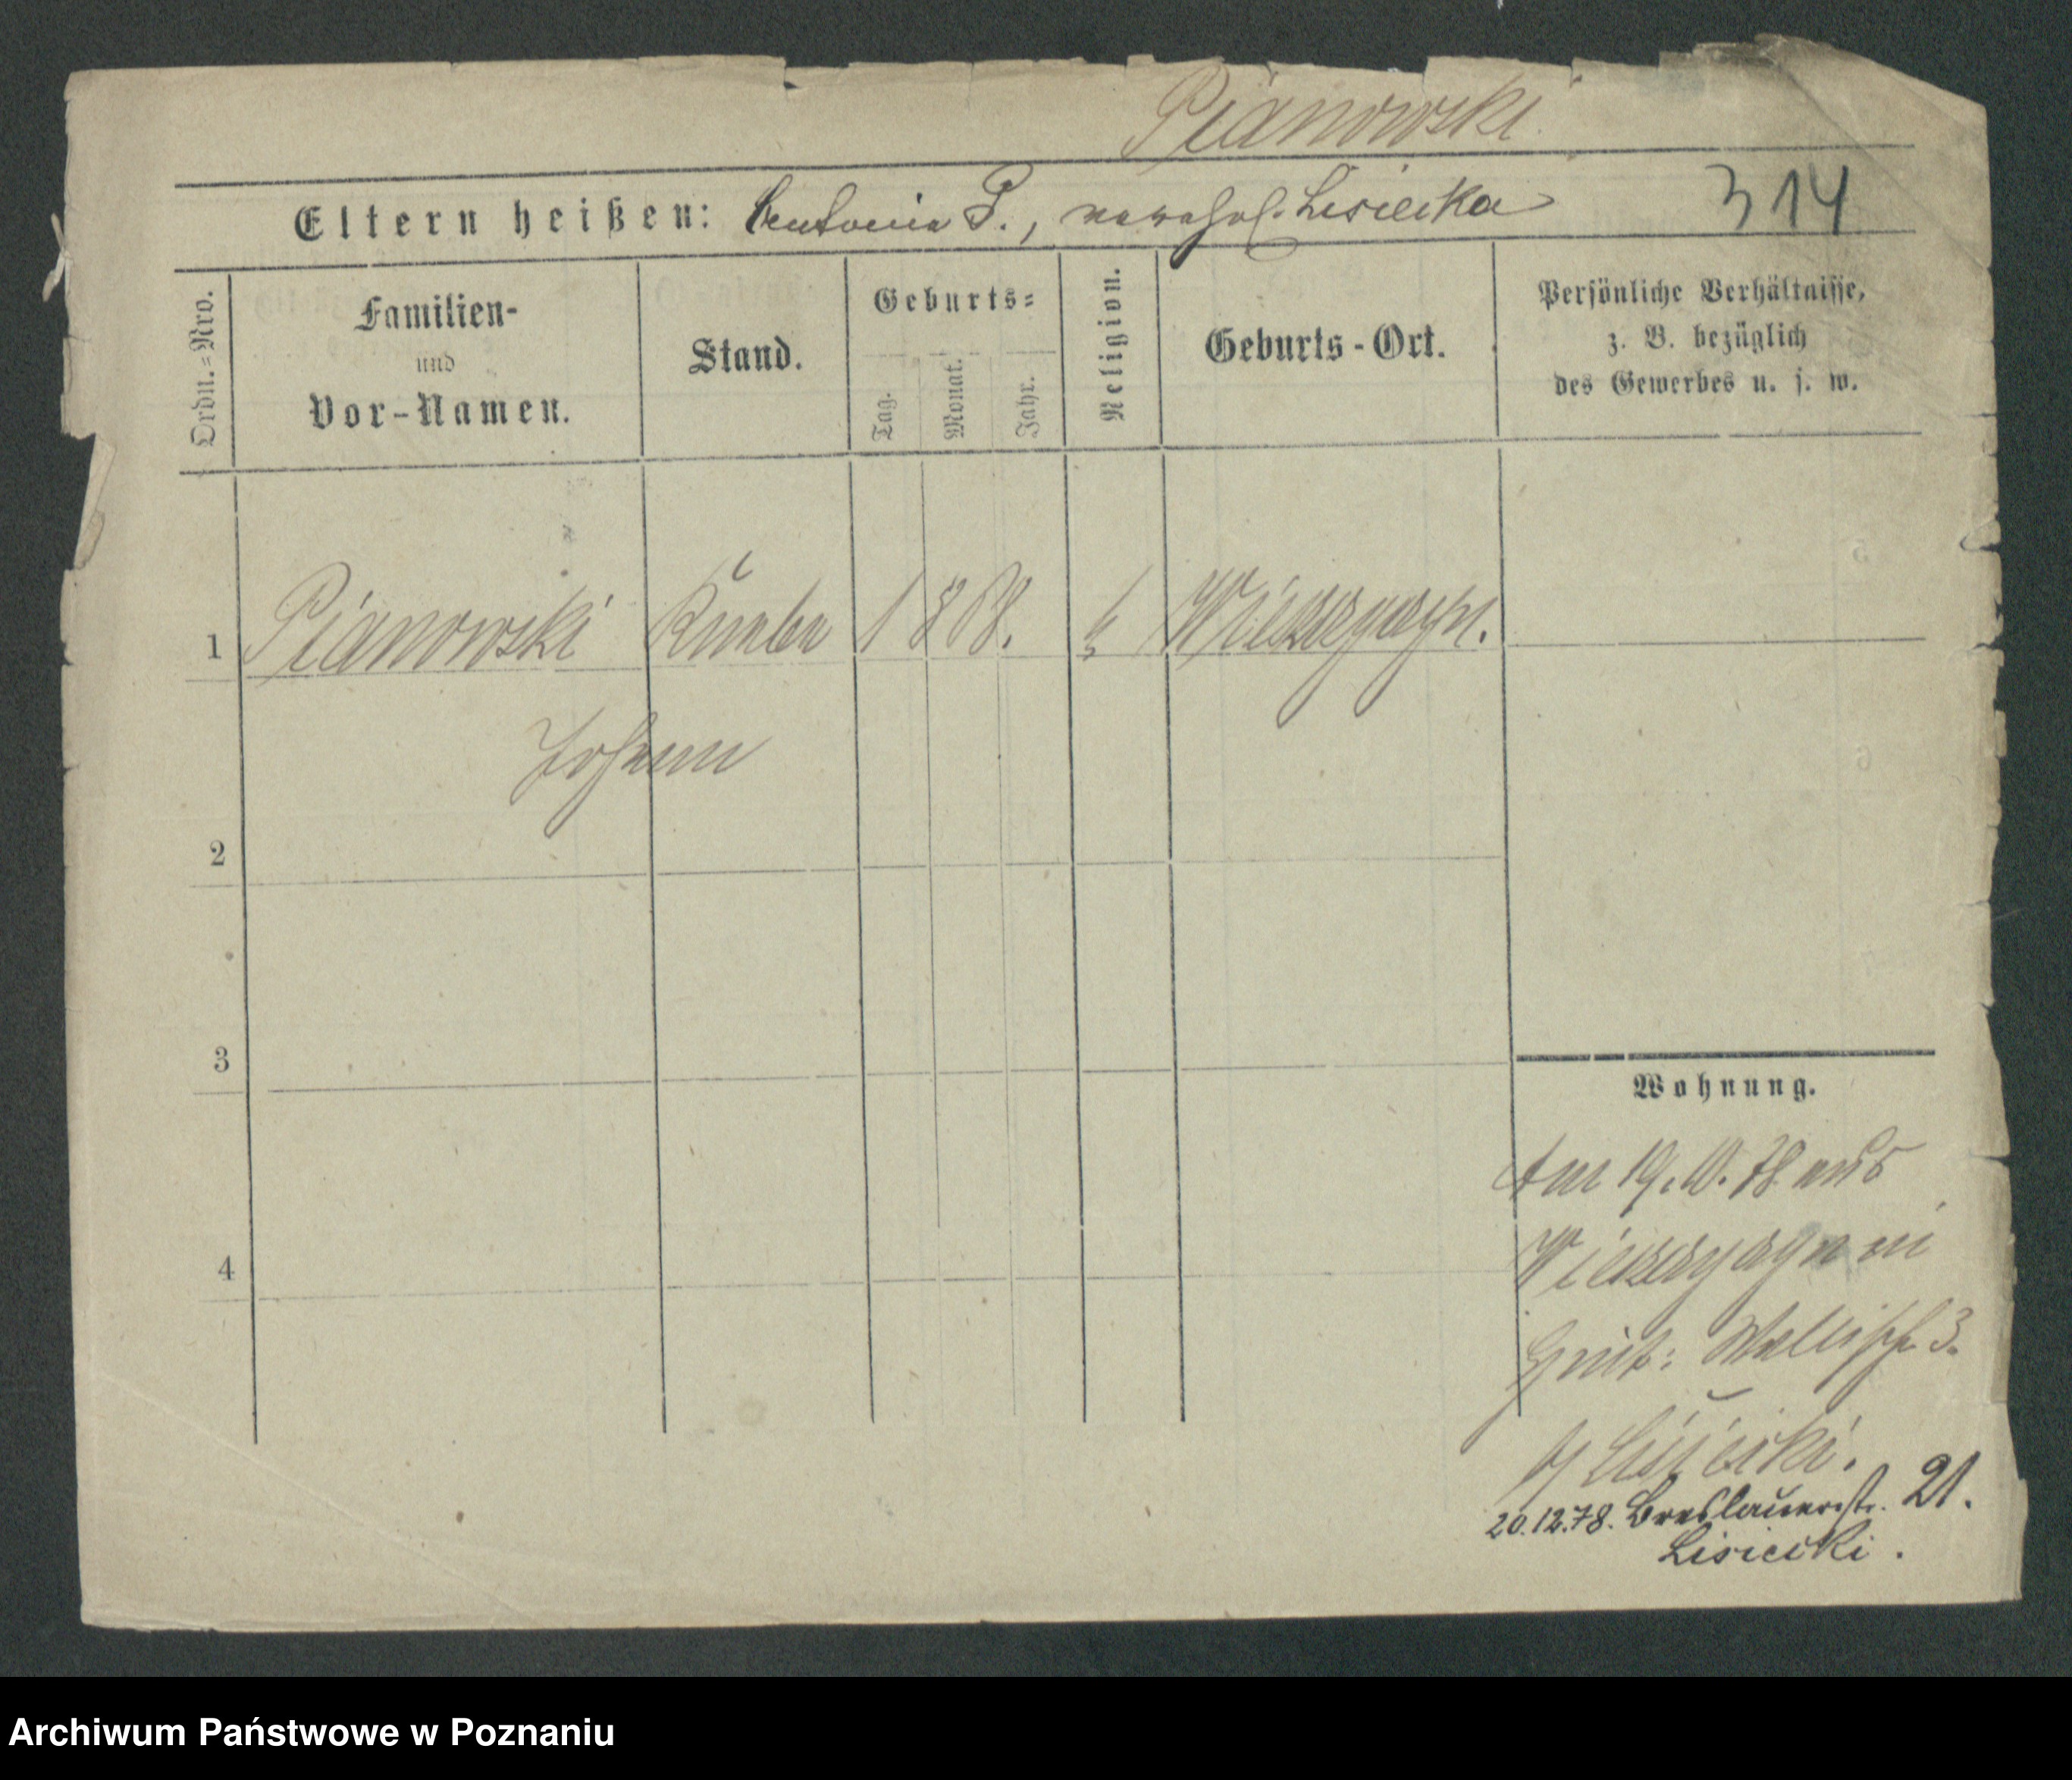 Pianowski
Eltern heißen: Antonia P., verehel. Lisiecka 314
Ordn.=Nro.
Familien-
und
Vor-Namen.
Stand.
Geburts=
Tag.
Monat.
Jahr.
Religion.
Geburts-Ort.
Persönliche Verhältnisse,
z. B. bezüglich
des Gewerbes u. s. w.
1 Pianowski Knabe 1868. k
Johann
2
3
4
Wohnung.
Am 19. 10. 78 aus
3.
b/ Lisiecki.
20.12.78. Breslauerstr. 21.
Lisiecki.
Archiwum Państwowe w Poznaniu